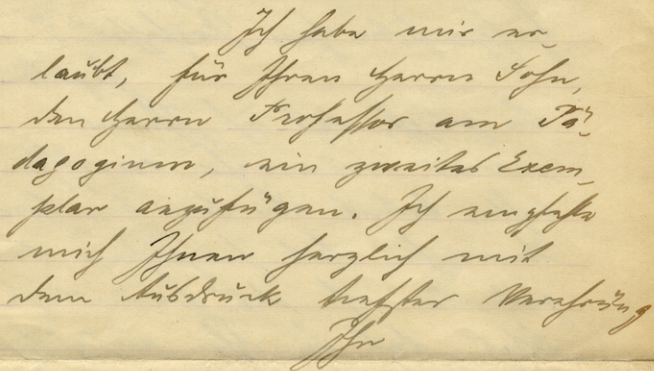 Ich habe mir er-
laubt, für Ihren Herrn Sohn,
den Herrn Professor am Pä-
dagogium, ein zweites Exem-
plar anzufügen. Ich empfehle
mich Ihnen herzlich mit
dem Ausdruck tiefster Verehrung
Ihr